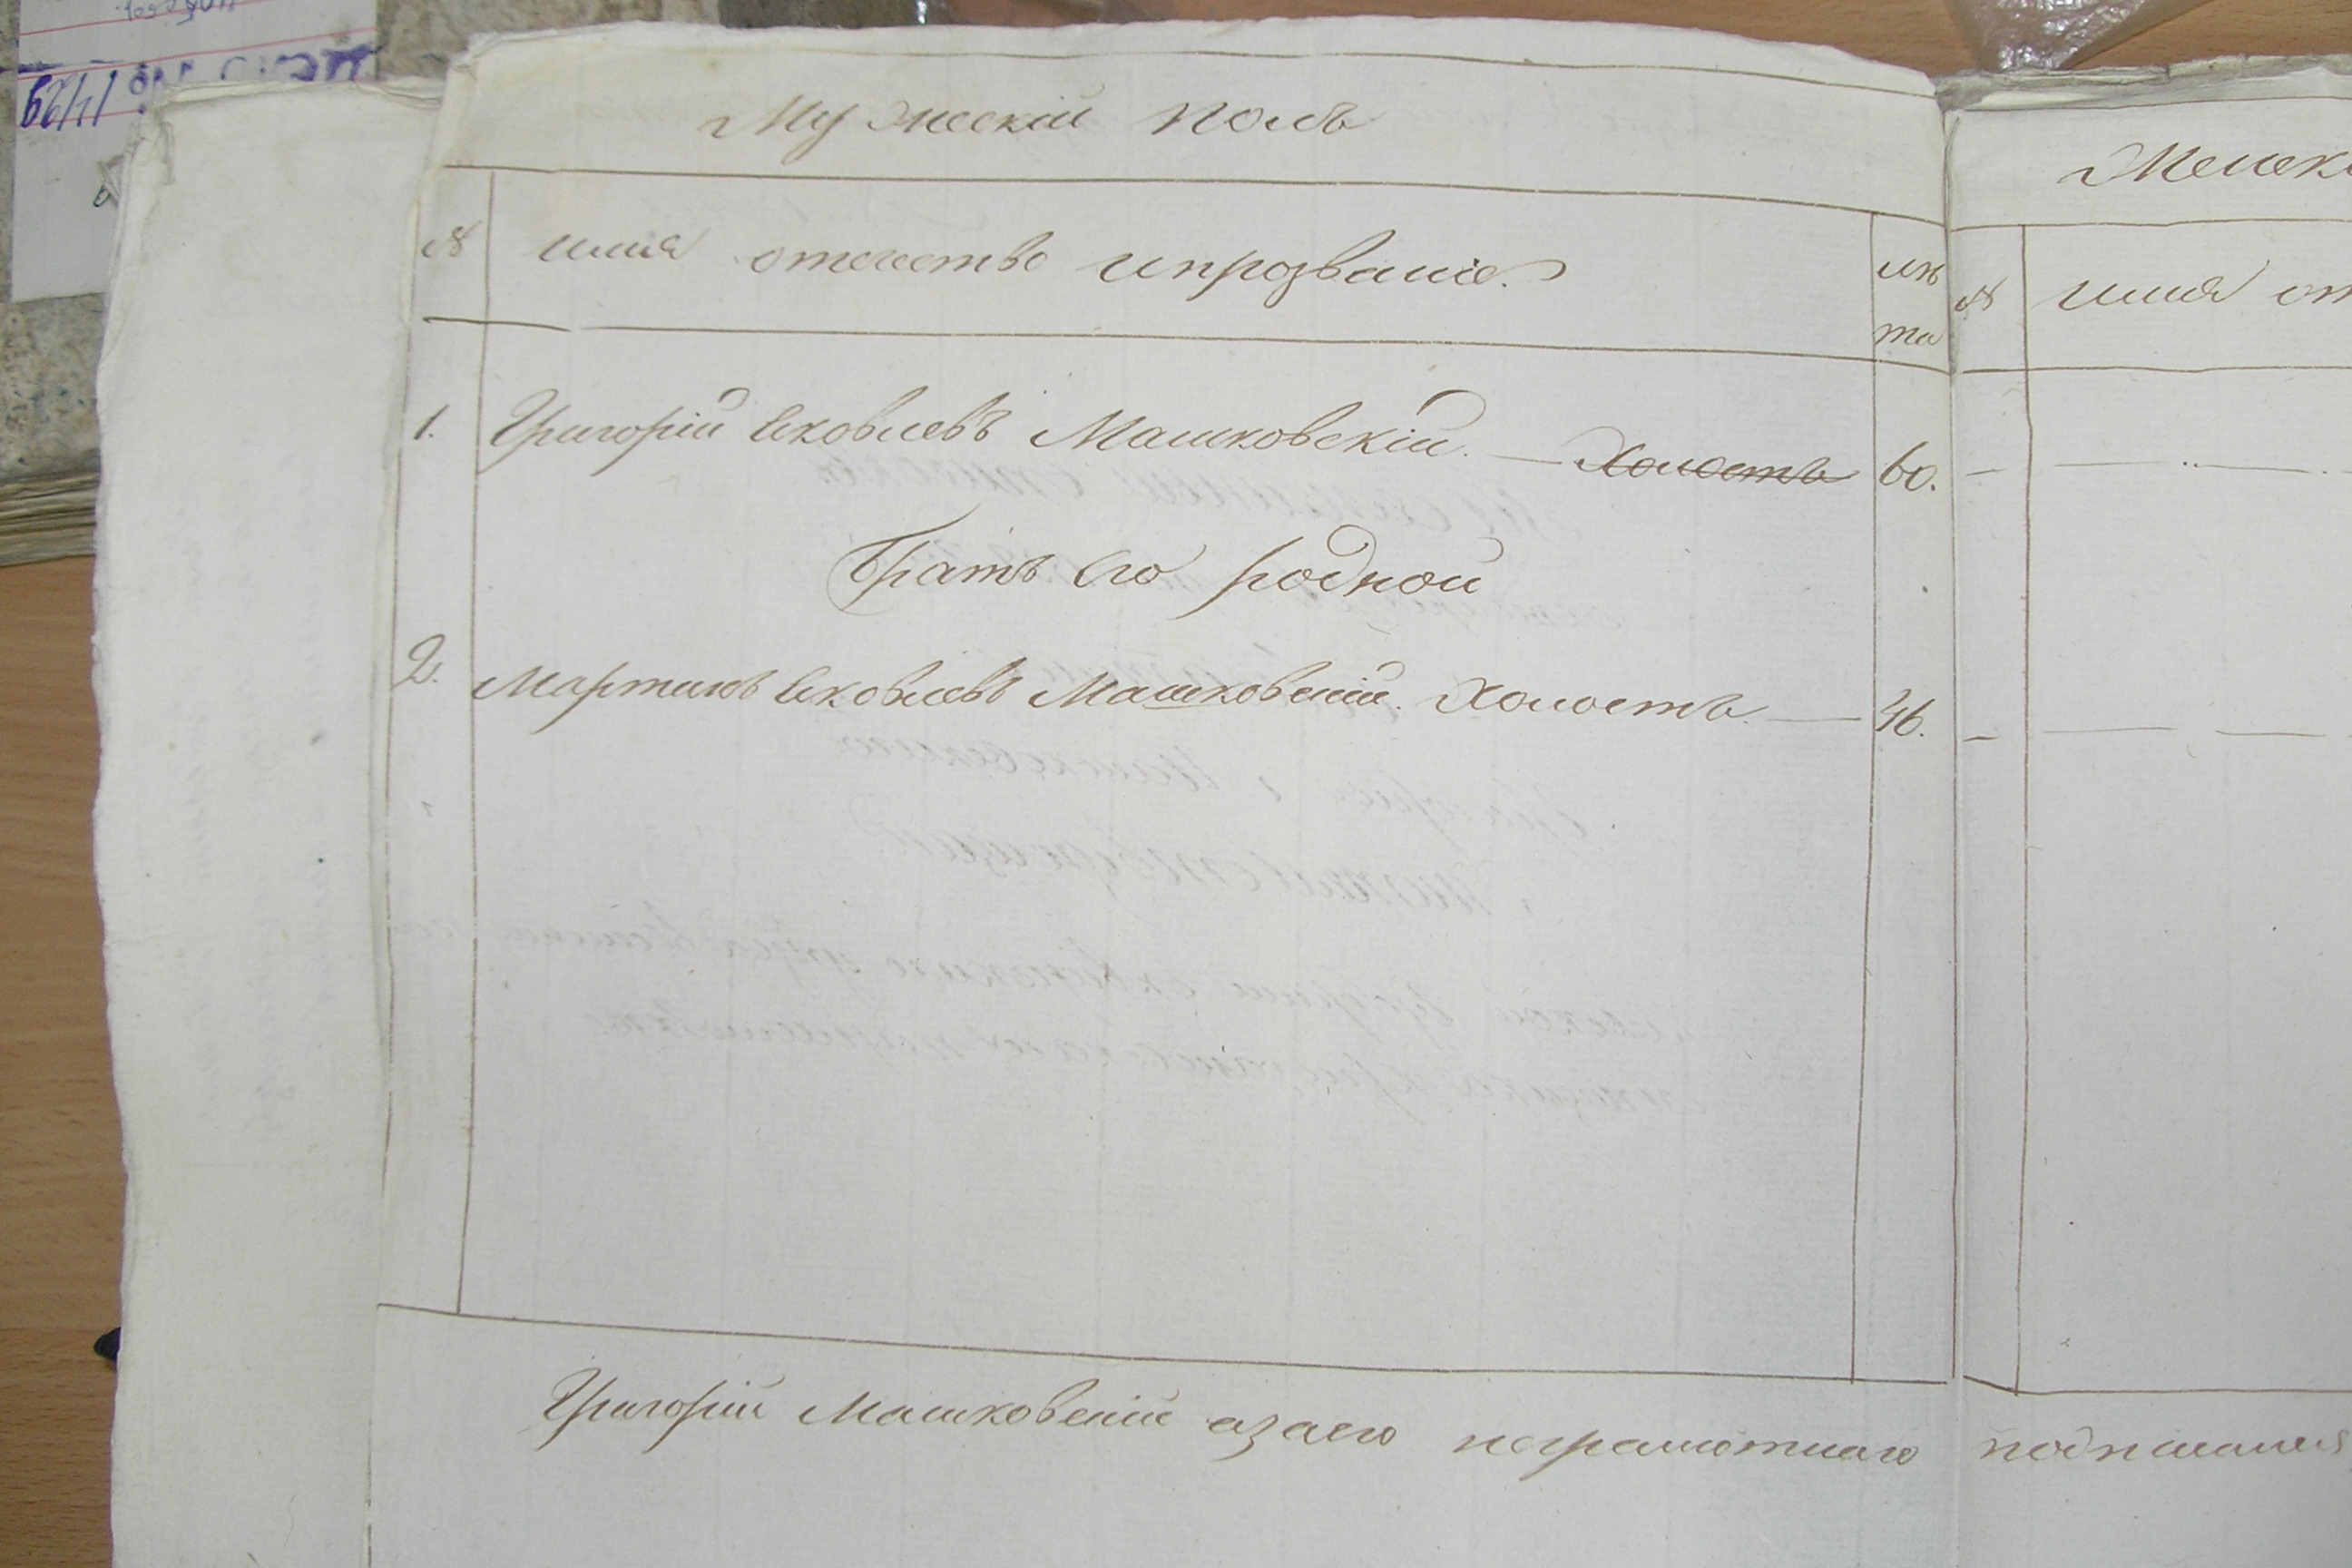 Мужескій полъ
№ имя отечество ипрозваніе. лѣ
та
1. Григорій Яковлевъ Машковскій. — Холостъ 60.
Братъ его родной
2. Мартинъ Яковлевъ Машковскій. Холостъ. — 46.
Григорій Машковскій азаего неграмотнаго подписался
Женск
№ имя от